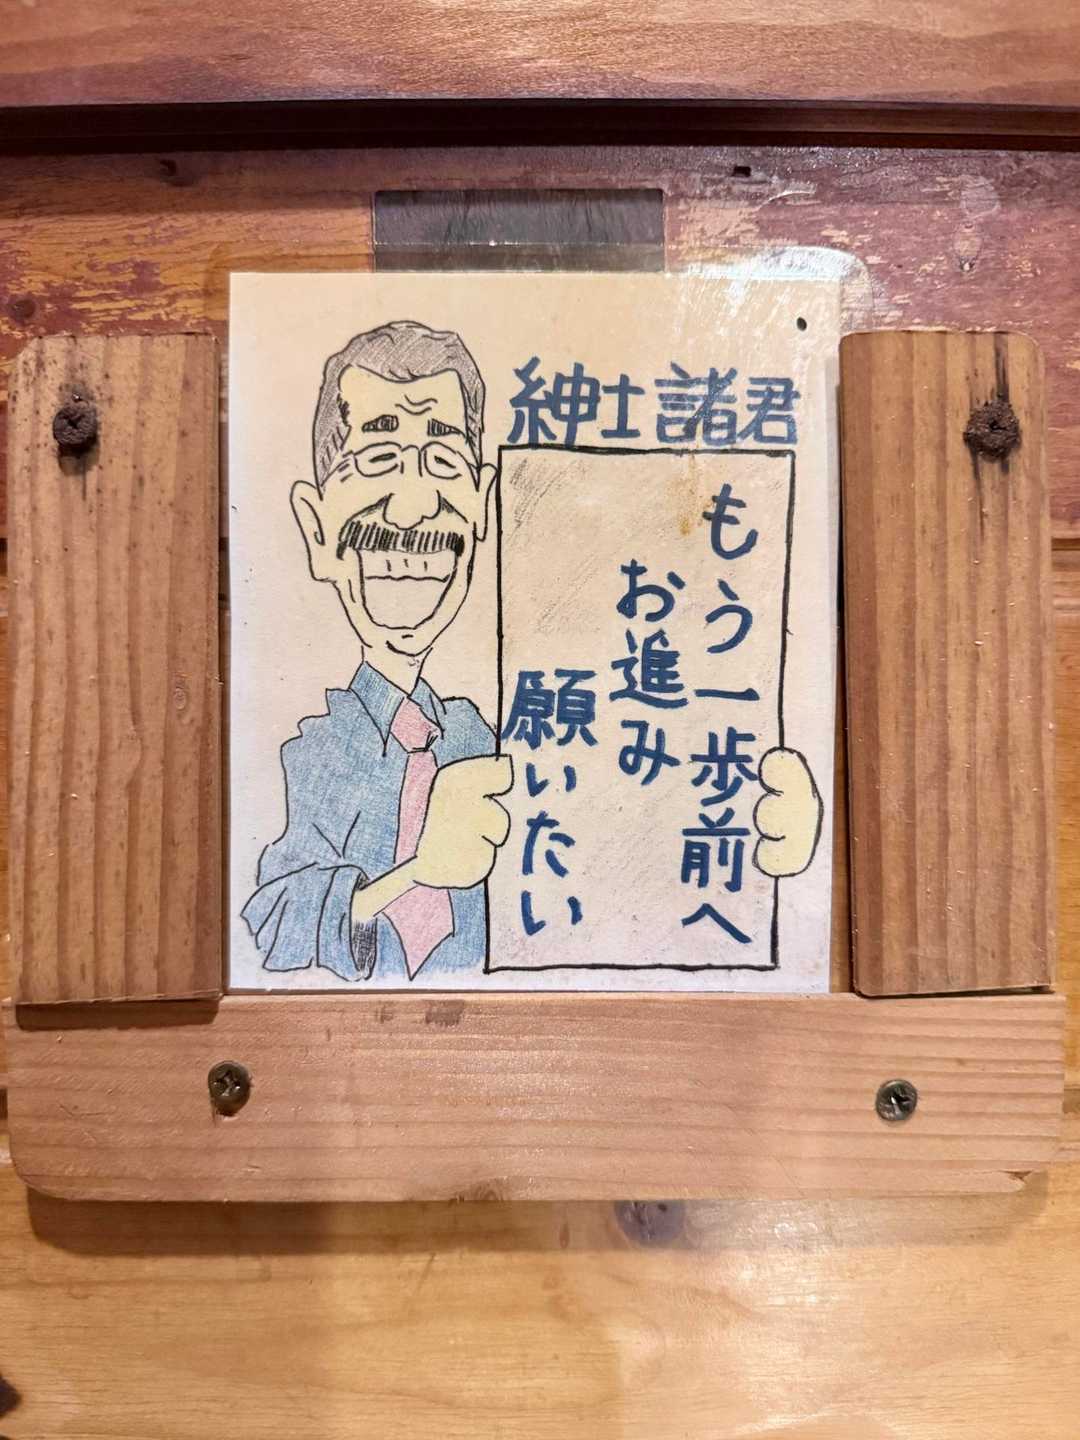 紳士諸君
もう一歩前へ
お進み
願いたい